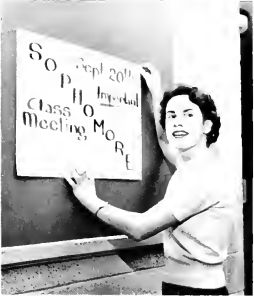 SOPHOMORE
Sept 20th
Important
Class
Meeting